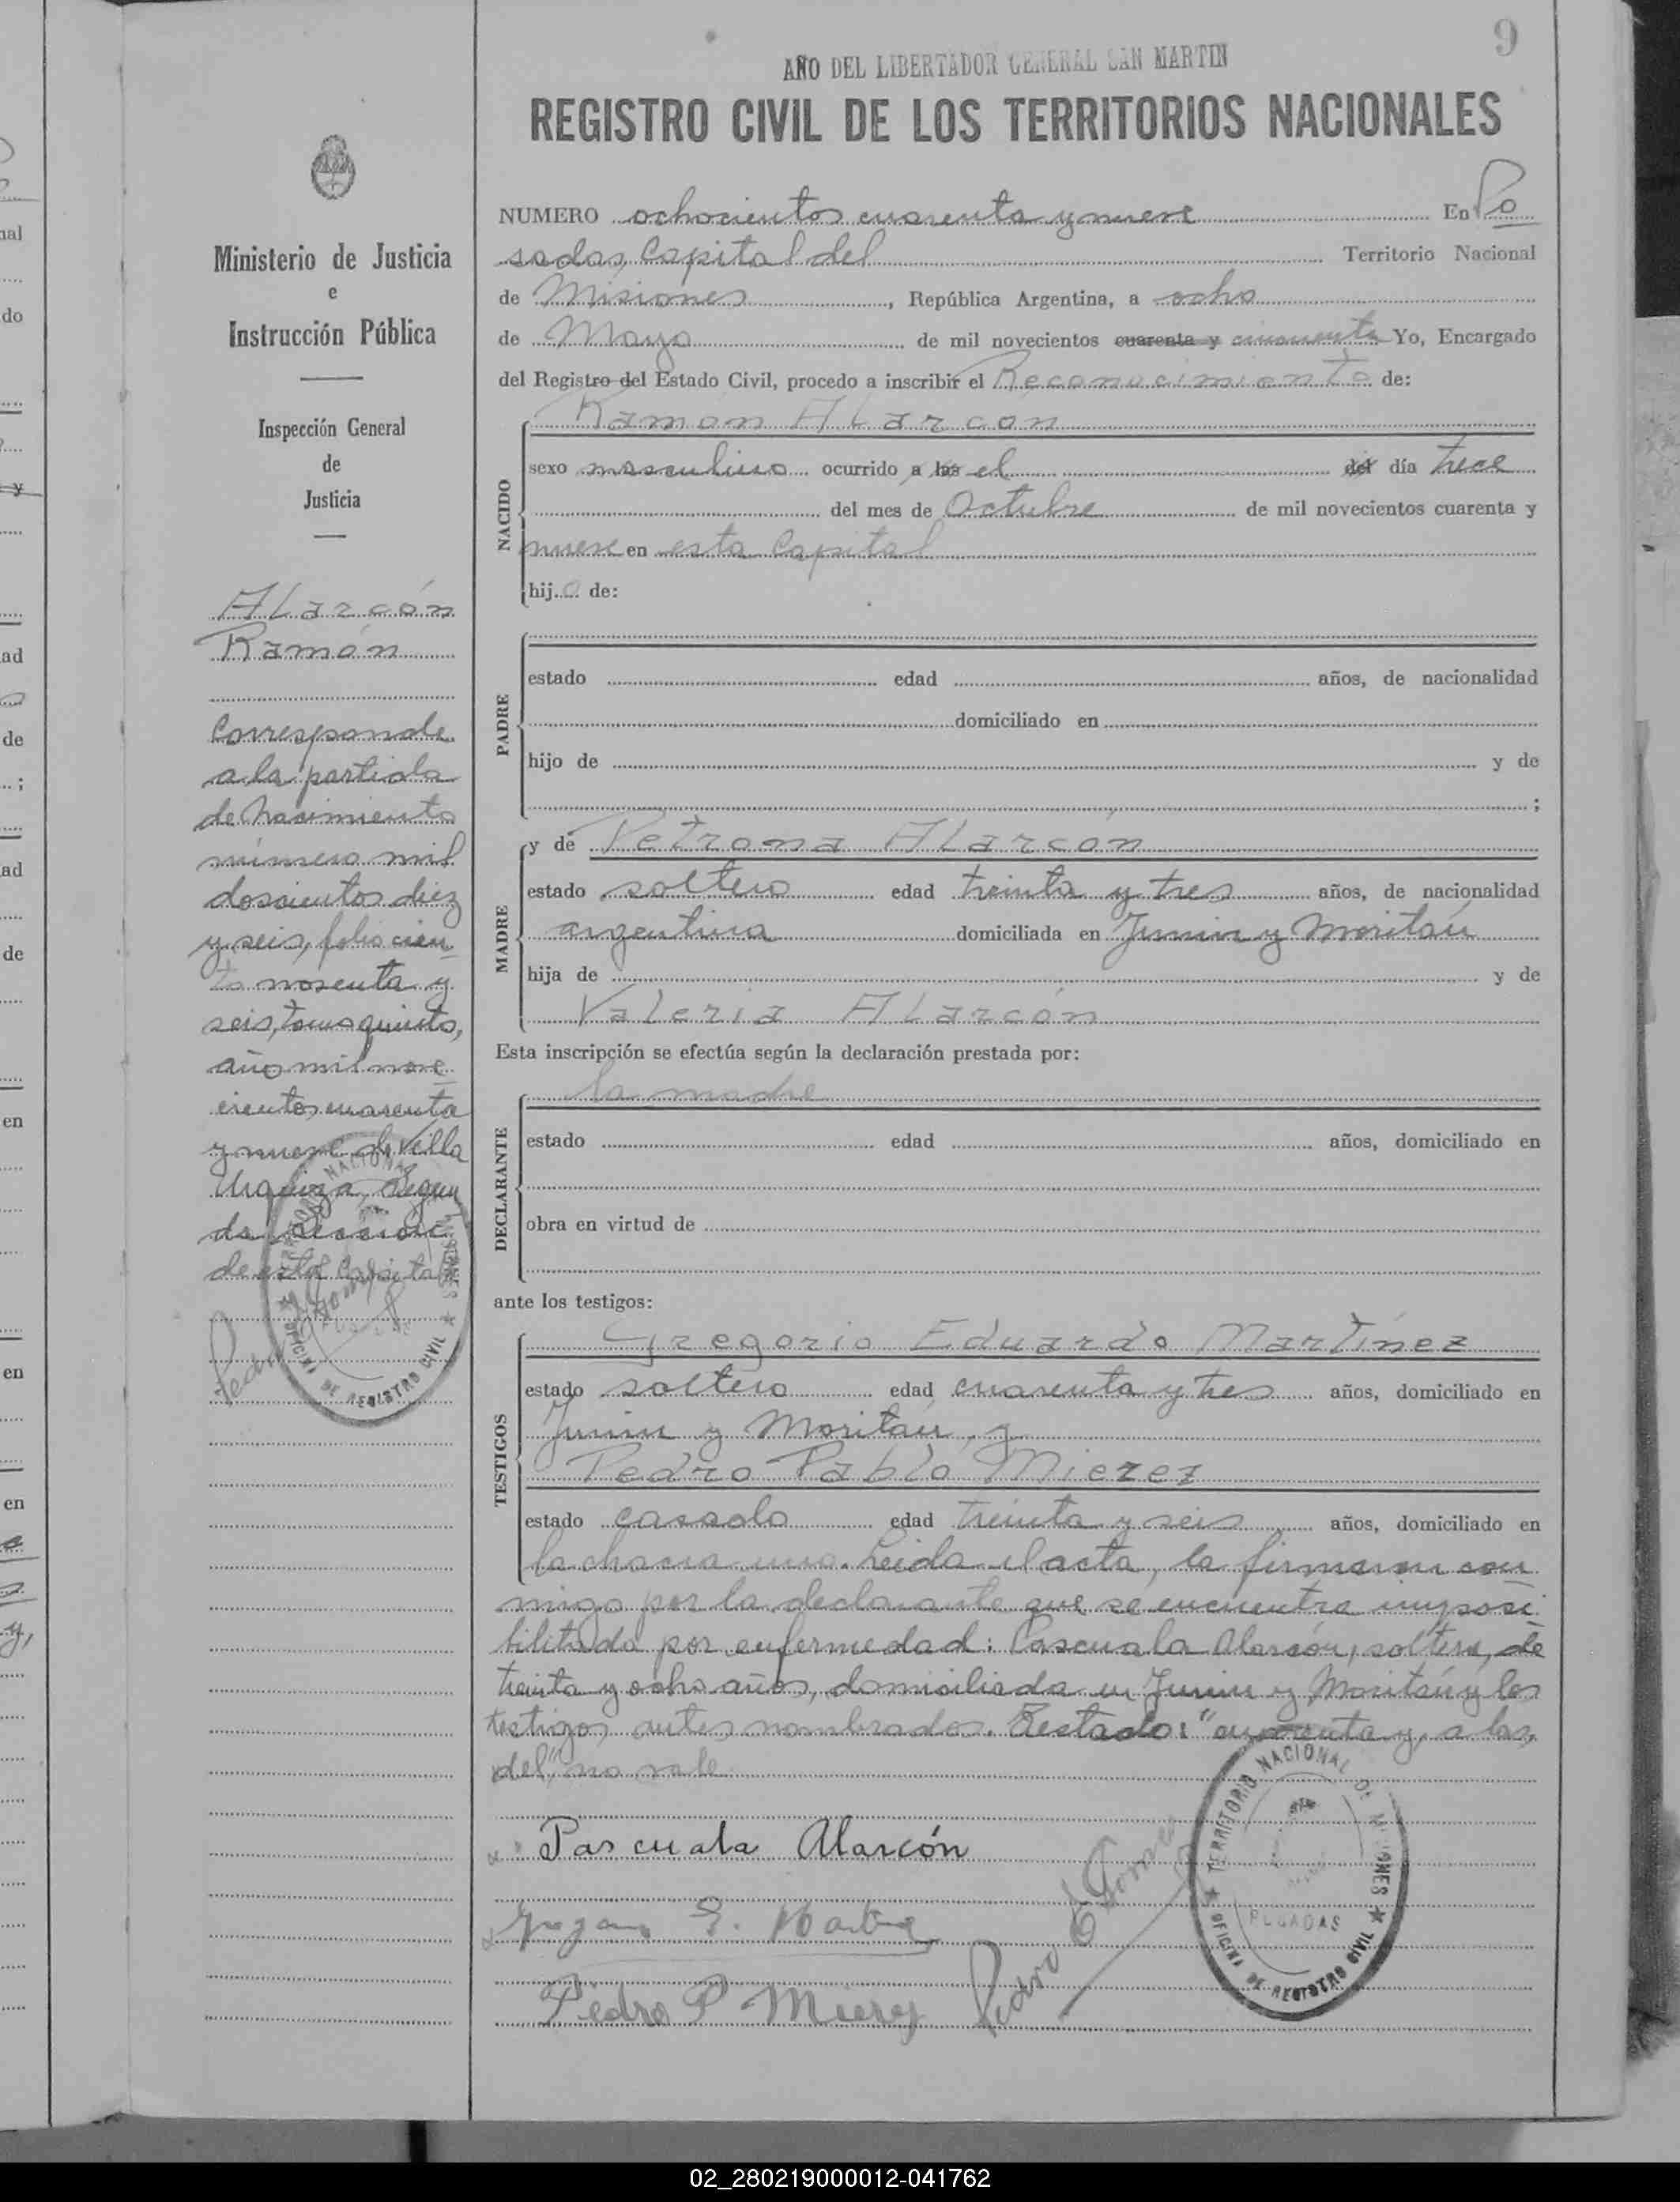 9
AÑO DEL LIBERTADOR GENERAL SAN MARTIN
REGISTRO CIVIL DE LOS TERRITORIOS NACIONALES
Ministerio de Justicia
e
Instrucción Pública
Inspección General
de
Justicia
ALarcón
Ramón
Corresponde
a la partida
de nacimiento
número mil
doscientos diez
y seis, folio cien-
to noventa y
seis, tomo quinto,
año mil nove
cientos cuarenta
y nueve de Villa
Urquiza, Segun
da Sección
de esta Capital
NUMERO ochocientos cuarenta y nueve En Po
sadas, Capital del Territorio Nacional
de Misiones, República Argentina, a ocho
de Mayo de mil novecientos cuarenta y cincuenta Yo, Encargado
del Registro del Estado Civil, procedo a inscribir el Reconocimiento de:
Ramón ALarcon
NACIDO
sexo masculino ocurrido a las el del día trece
del mes de Octubre de mil novecientos cuarenta y
nueve en esta Capital
hijo de:
PADRE
estado edad años, de nacionalidad
domiciliado en
hijo de y de
;
MADRE
y de Petrona ALarcon
estado soltera edad treinta y tres años, de nacionalidad
argentina domiciliada en Junin y Moritán
hija de y de
Valeria ALarcón
Esta inscripción se efectúa según la declaración prestada por:
la madre
DECLARANTE
estado edad años, domiciliado en
obra en virtud de
ante los testigos:
TESTIGOS
Gregorio Eduardo Martínez
estado soltero edad cuarenta y tres años, domiciliado en
Junin y Moritán, y
Pedro Pablo Mierez
estado casado edad treinta y seis años, domiciliado en
la chacra uno. Leida el acta, la firmaron con
migo por la declarante que se encuentra imposi
bilitada por enfermedad: Pascuala Alarcón, soltera, de
treinta y ocho años, domiciliada en Junin y Moritán y los
testigos antes nombrados. Testado: "cuarenta y, a las,
del", no vale.
Pascuala Alarcón
Pedro P Mierez
TERRITORIO NACIONAL DE MISIONES
POSADAS
OFICINA DE REGISTRO CIVIL
02_280219000012-041762